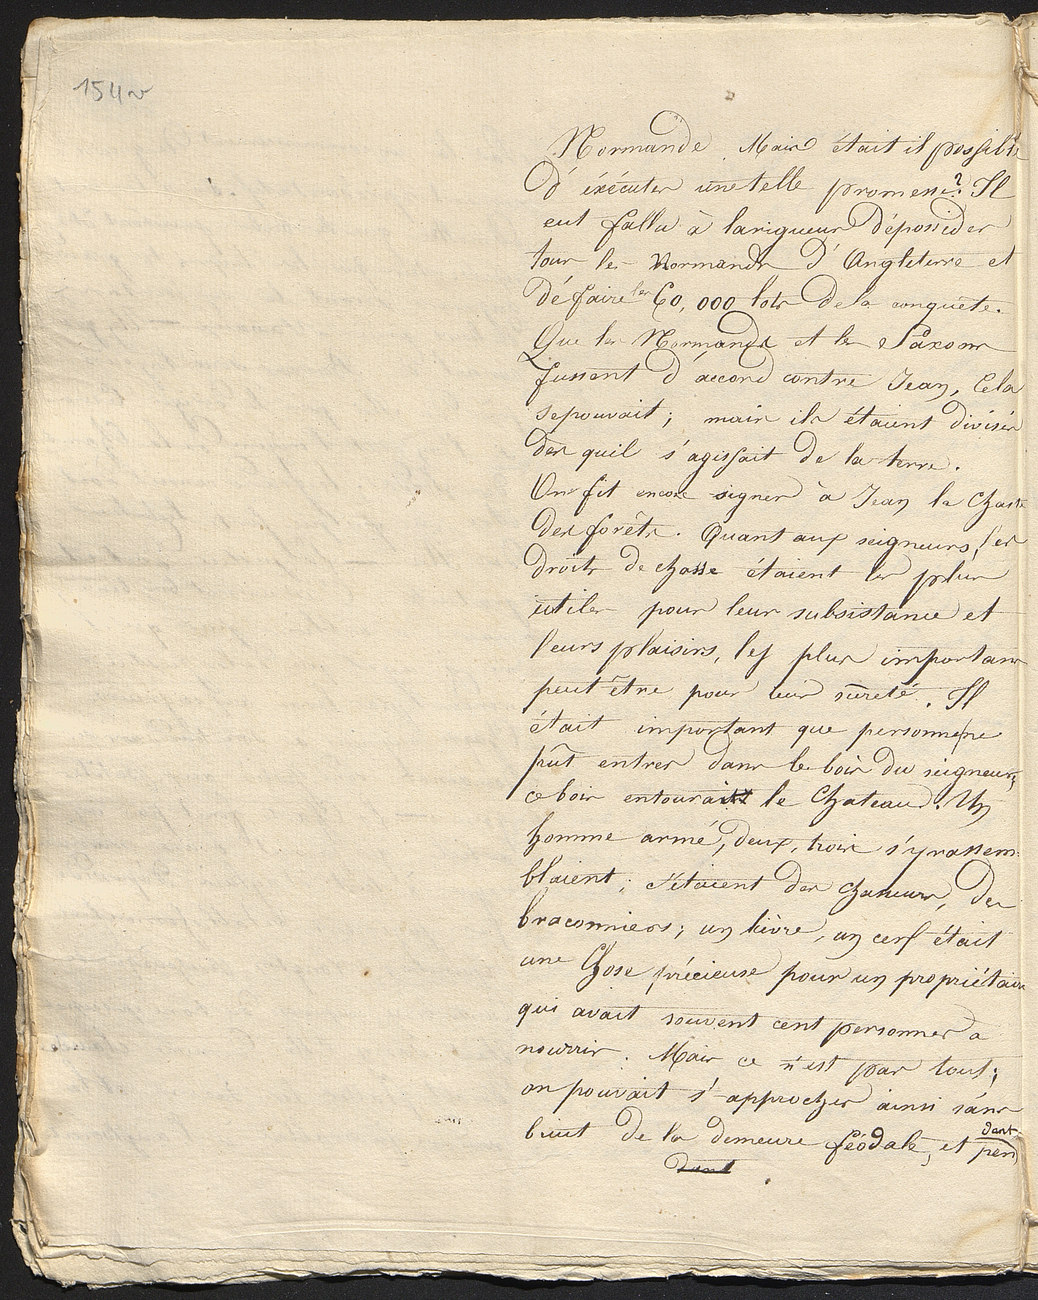 154v
Normande. Mais était il possible
d'éxécuter une telle promesse? Il
eut fallu à la rigueur déposséder
tous les Normands d'Angleterre et
défaire les 60,000 lots de la conquète.
Que les Normands et les Saxons
fussent d'accord contre Jean, cela
se pouvait; mais ils étaient divisés
dès quil s'agissait de la terre.
On fit encore signer à Jean la Charte
des forêts. Quant aux seigneurs, les
droits de chasse étaient les plus
utiles pour leur subsistance et
leurs plaisirs, les plus importans
peut être pour leur sûreté. Il
était important que personne ne
pût entrer dans le bois du seigneur;
ce bois entourait le Chateau. Un
homme armé, deux, trois s'y rassem-
blaient; c'étaient des chasseurs, des
braconniers; un lièvre, un cerf était
une chose précieuse pour un propriétaire
qui avait souvent cent personnes a
nourrir. Mais ce n'est pas tout;
on pouvait s'approcher ainsi sans
bruit de la demeure féodale, et pendant
dant